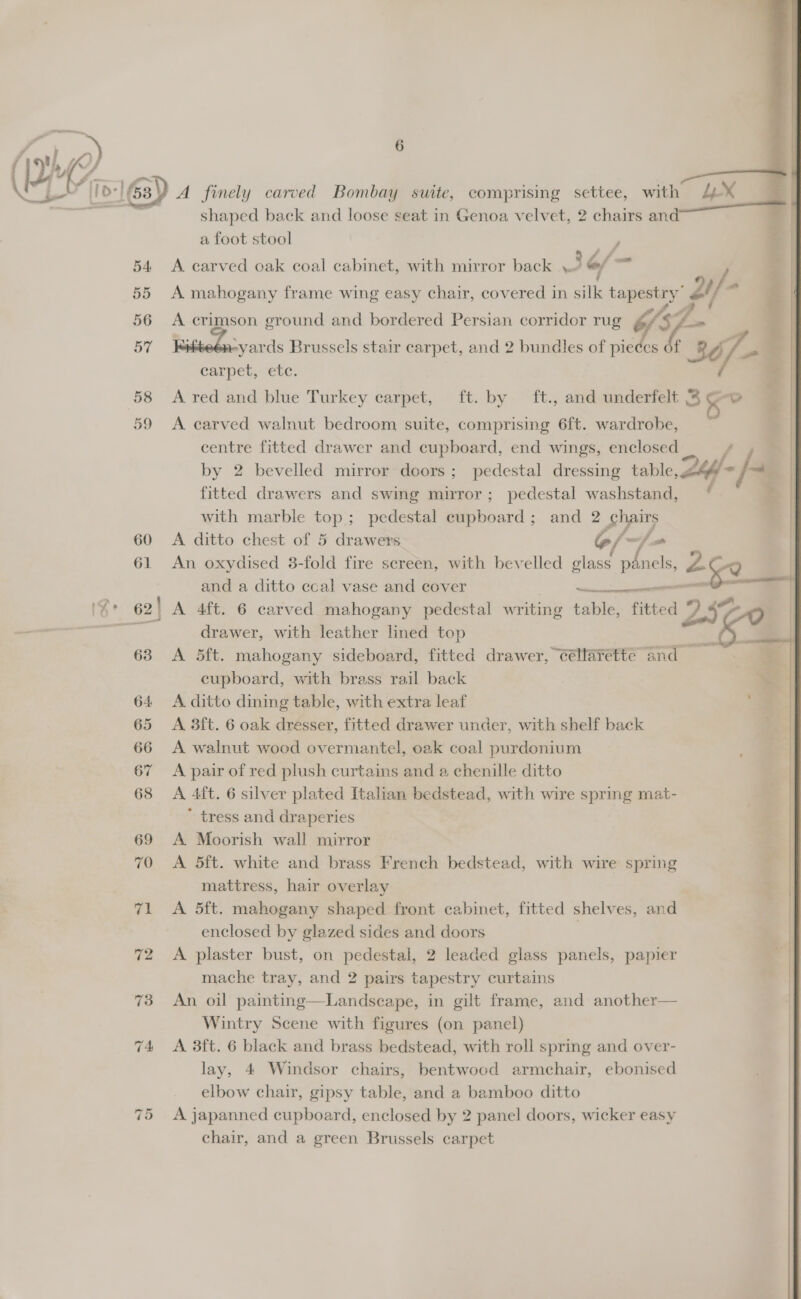 6
53 A finely carved Bombay suite, comprising settee, with
shaped back and loose seat in Genoa velvet, 2 chairs and
a foot stool
54 A carved oak coal cabinet, with mirror back
55 A mahogany frame wing easy chair, covered in silk tapestry
56 A crimson ground and bordered Persian corridor rug
57 Fifteen-yards Brussels stair carpet, and 2 bundles of pieces of
carpet, etc.
58 A red and blue Turkey carpet, ft. by ft., and underfelt
59 A carved walnut bedroom suite, comprising 6ft. wardrobe,
centre fitted drawer and cupboard, end wings, enclosed
by 2 bevelled mirror doors ; pedestal dressing table,
fitted drawers and swing mirror ; pedestal washstand,
with marble top ; pedestal cupboard ; and 2 chairs
60 A ditto chest of 5 drawers
61 An oxydised 3-fold fire screen, with bevelled glass panels,
and a ditto coal vase and cover
62 A 4ft. 6 carved mahogany pedestal writing table, fitted
drawer, with leather lined top
63 A 5ft. mahogany sideboard, fitted drawer, cellarette and
cupboard, with brass rail back
64 A ditto dining table, with extra leaf
65 A 3ft. 6 oak dresser, fitted drawer under, with shelf back
66 A walnut wood overmantel, oak coal purdonium
67 A pair of red plush curtains and a chenille ditto
68 A 4ft. 6 silver plated Italian bedstead, with wire spring mat-
tress and draperies
69 A Moorish wall mirror
70 A 5ft. white and brass French bedstead, with wire spring
mattress, hair overlay
71 A 5ft. mahogany shaped front cabinet, fitted shelves, and
enclosed by glazed sides and doors
72 A plaster bust, on pedestal, 2 leaded glass panels, papier
mache tray, and 2 pairs tapestry curtains
73 An oil painting—Landscape, in gilt frame, and another—
Wintry Scene with figures (on panel)
74 A 3ft. 6 black and brass bedstead, with roll spring and over-
lay, 4 Windsor chairs, bentwood armchair, ebonised
elbow chair, gipsy table, and a bamboo ditto
75 A japanned cupboard, enclosed by 2 panel doors, wicker easy
chair, and a green Brussels carpet